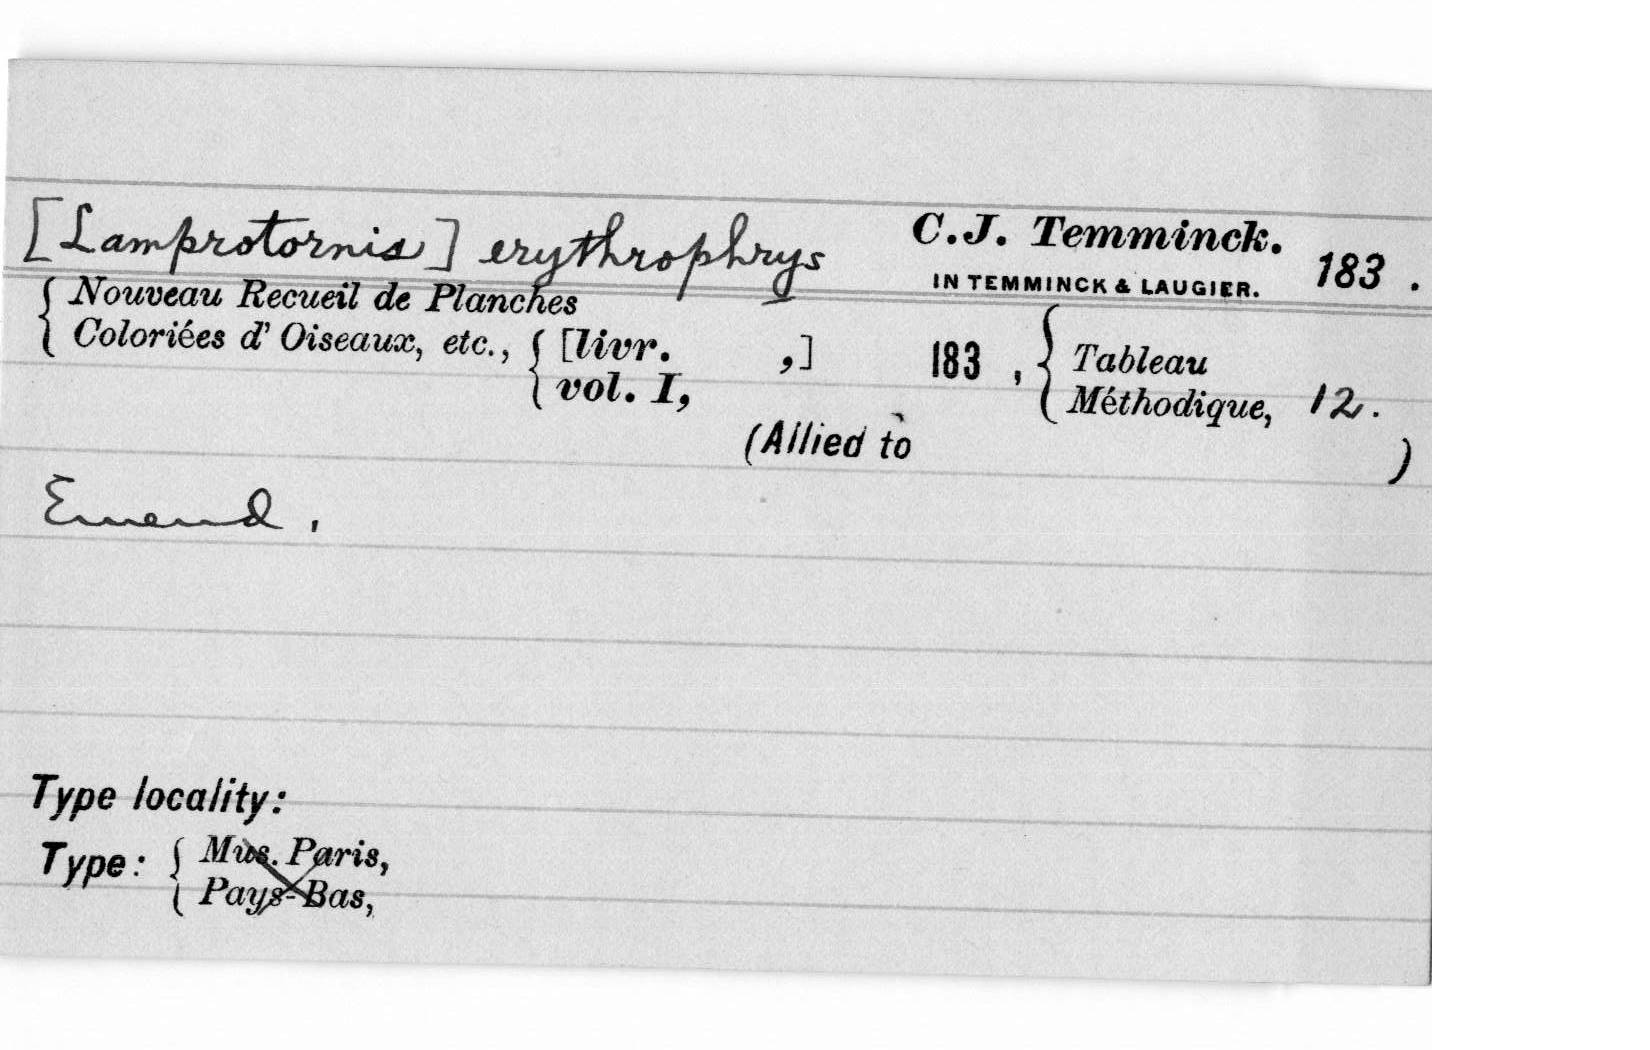 [Lamprotornis] erythrophrys C.J. Temminck. 183 .
IN TEMMINCK & LAUGIER.
{ Nouveau Recueil de Planches
Coloriées d' Oiseaux, etc., { [livr. ,] 183 , { Tableau
vol. I, Méthodique, 12.
(Allied to )
Emend.
Type locality:
Type: { Mus. Paris,
Pays-Bas,